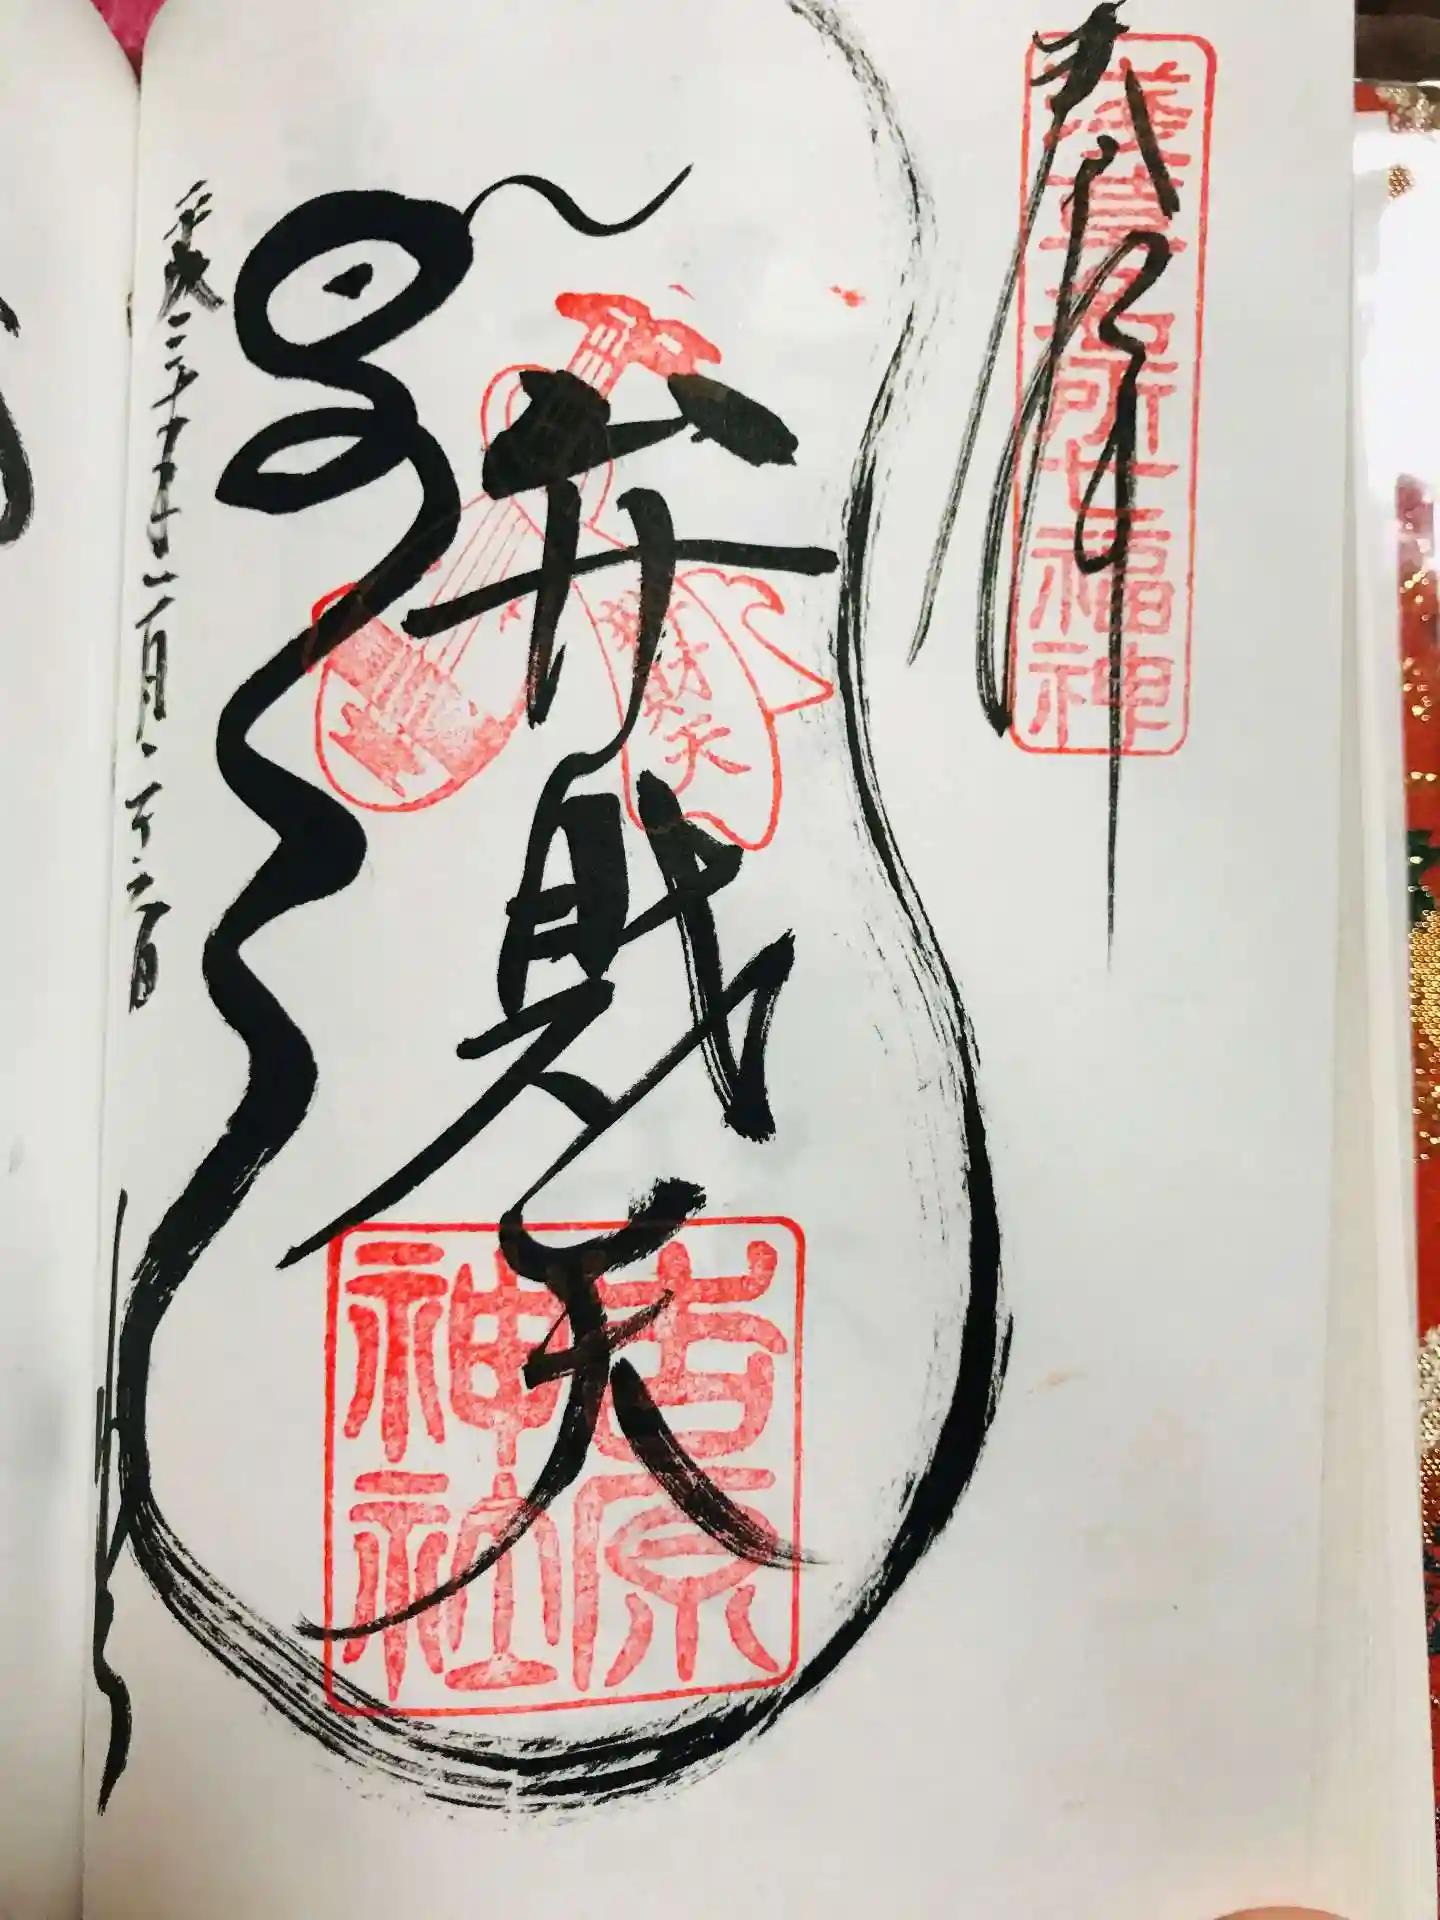 奉拝
浅草名所七福神
弁財天
弁財天
吉原
神社
平成二十九年六月二十六日